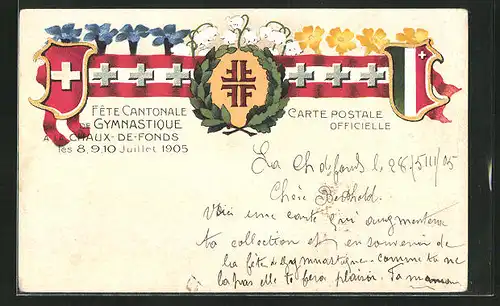 FÊTE CANTONALE
DE GYMNASTIQUE
A LA CHAUX-DE-FONDS
les 8, 9, 10 Juillet 1905
CARTE POSTALE
OFFICIELLE
La Ch d fonds le 28/VIII/05
Chère Berthold.
Voici une carte qui augmentera
ta collection et en souvenir de
la fête de gymnastique comme tu ne
l'a pas elle te fera plaisir. Ta maman